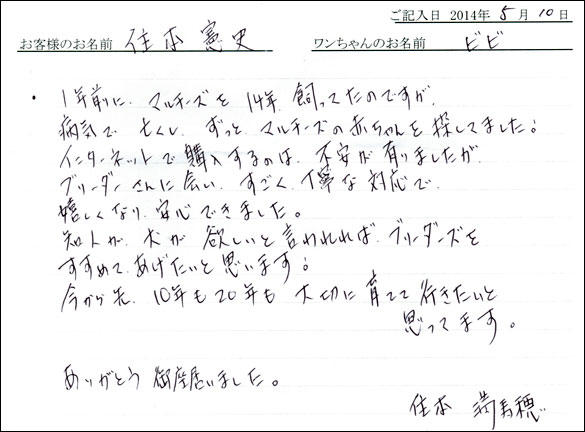 ご記入日 2014年 5月 10日
お客様のお名前 住本 憲史 ワンちゃんのお名前 ビビ
・1年前に、マルチーズを 14年 飼ってたのですが、
病気で 亡くし、ずっと マルチーズの赤ちゃんを 探してました!
インターネットで購入するのは、不安が 有りましたが、
ブリーダーさんに会い、すごく 丁寧な 対応で、
嬉しくなり、安心できました。
知人が、犬が 欲しいと 言われれば、ブリーダーズを
すすめて あげたいと 思います!
今から先、10年も 20年も 大切に 育てて 行きたいと
思ってます。
ありがとう 御座居いました。
住本 満寿穂